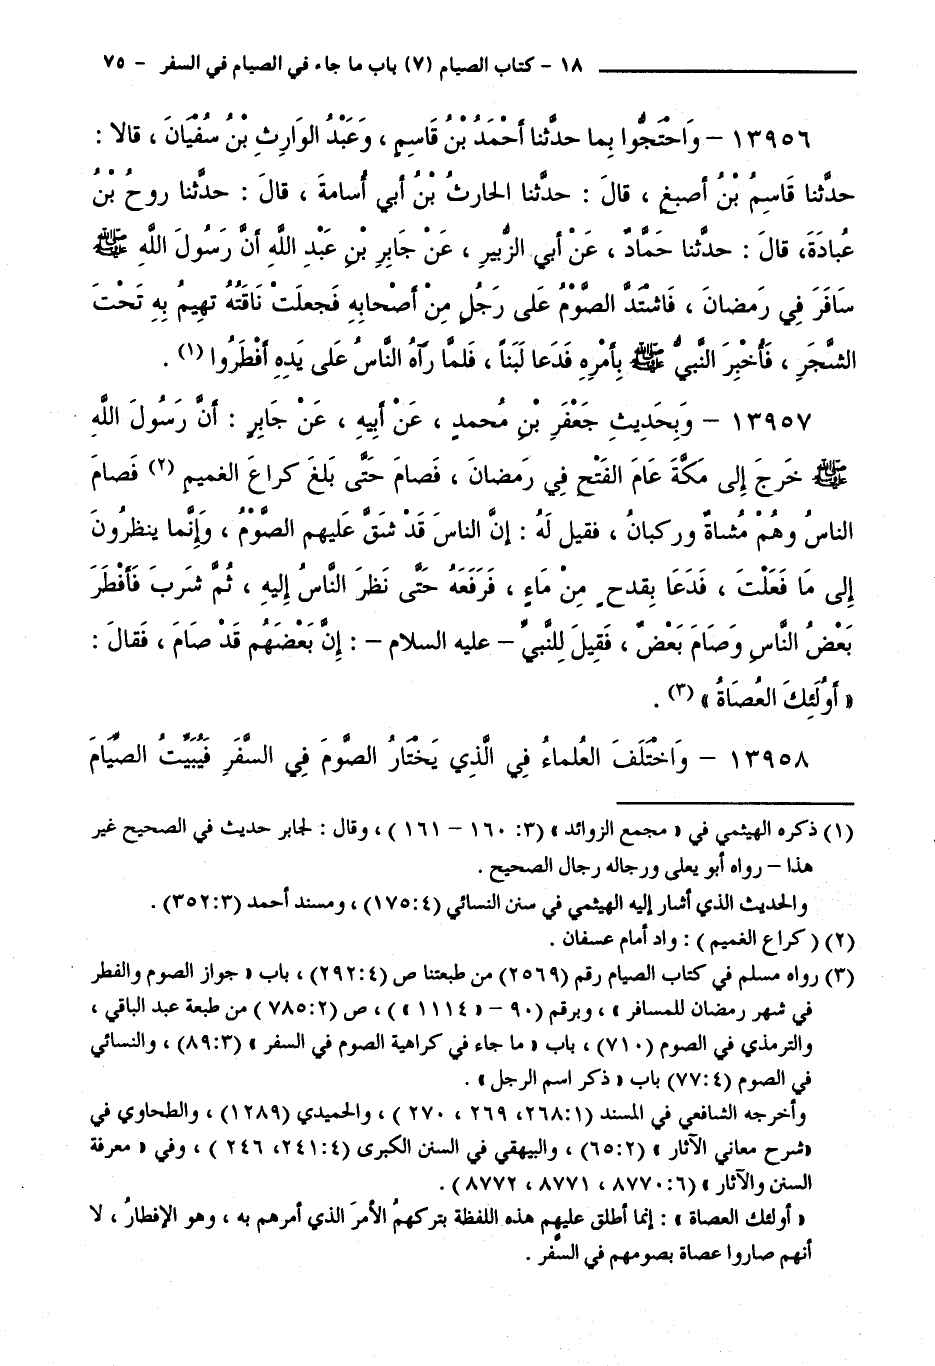 ١٨ - كتاب الصيام (٧) باب ما جاء في الصيام في السفر - ٧٥
١٣٩٥٦ – وَاحْتَجُّوا بِما حدثَّنا أحْمَدُ بْنُ قَاسِمٍ ، وَعَبْدُ الوَارِثِ بْنُ سُفْيَانَ ، قالا :
حدثَّنا قَاسِمُ بْنُ أصبغِ ، قالَ : حدثَّنا الحارثُ بْنُ أبي أُسامةَ ، قالَ : حدثَّنا روحُ بْنُ
عُبادَةَ، قالَ : حدثَّنا حَمَّادٌ ، عَنْ أبي الزُّبيرِ ، عَنْ جَابِرِ بْنِ عبدِ اللَّهِ أنَّ رَسُولَ اللَّهِ ﷺ
سَافَرَ فِي رَمضانَ ، فَاشْتَدَّ الصَّوْمُ عَلى رَجُلٍ مِنْ أصْحابِهِ فَجعلَتْ نَاقَتُهُ تَهِيمُ بِهِ تَحْتَ
الشَّجَرِ ، فَأُخْبِرَ النَّبيُّ ﷺ بِأمْرِهِ فَدَعا لَبَناً ، فَلمَّا رَآهُ النَّاسُ عَلى يَدِهِ أفْطَرُوا (١) .
١٣٩٥٧ – وَبِحَدِيثِ جَعْفَرِ بْنِ مُحمدٍ ، عَنْ أبِيهِ ، عَنْ جَابِرٍ : أنَّ رَسُولَ اللَّهِ
ﷺ خَرجَ إلى مَكَّةَ عَامَ الفَتْحِ فِي رَمضانَ ، فَصامَ حَتَّى بَلغَ كراعَ الغميمِ (٢) فَصامَ
الناسُ وهُمْ مُشاةٌ وركبانُ ، فقيل لَهُ : إنَّ الناسَ قَدْ شقَّ عَليهم الصَّوْمُ ، وَإنَّما ينظرُونَ
إلى مَا فَعَلْتَ ، فَدَعَا بِقدحٍ مِنْ مَاءٍ ، فَرَفَعَهُ حَتَّى نَظرَ النَّاسُ إليهِ ، ثُمَّ شَرِبَ فَأفْطَرَ
بَعْضُ النَّاسِ وَصَامَ بَعْضٌ ، فَقِيلَ لِلنَّبيِّ – عليه السلام – : إنَّ بَعْضَهُم قَدْ صَامَ ، فَقالَ :
« أولَئِكَ العُصَاةُ » (٣) .
١٣٩٥٨ – وَاخْتَلَفَ العُلماءُ فِي الَّذِي يَخْتَارُ الصَّومَ فِي السَّفَرِ فَيُبَيِّتُ الصِّيَامَ
(١) ذكره الهيثمي في « مجمع الزوائد » (٣: ١٦٠ – ١٦١ ) ، وقال : لجابر حديث في الصحيح غير
هذا – رواه أبو يعلى ورجاله رجال الصحيح .
والحديث الذي أشار إليه الهيثمي في سنن النسائي (١٧٥:٤) ، ومسند أحمد (٣٥٢:٣) .
(٢) ( كراع الغميم ) : واد أمام عسفان .
(٣) رواه مسلم في كتاب الصيام رقم (٢٥٦٩) من طبعتنا ص (٢٩٢:٤) ، باب « جواز الصوم والفطر
في شهر رمضان للمسافر » ، وبرقم (٩٠ – « ١١١٤ » ) ، ص (٧٨٥:٢ ) من طبعة عبد الباقي ،
والترمذي في الصوم (٧١٠) ، باب « ما جاء في كراهية الصوم في السفر » (٨٩:٣) ، والنسائي
في الصوم (٧٧:٤) باب « ذكر اسم الرجل » .
وأخرجه الشافعي في المسند (٢٦٨:١، ٢٦٩ ، ٢٧٠ ) ، والحميدي (١٢٨٩) ، والطحاوي في
«شرح معاني الآثار » (٦٥:٢) ، والبيهقي في السنن الكبرى (٢٤١:٤، ٢٤٦ ) ، وفي « معرفة
السنن والآثار » (٨٧٧٠:٦ ، ٨٧٧١ ، ٨٧٧٢ ) .
« أولئك العصاة » : إنما أطلق عليهم هذه اللفظة بتركهمُ الأمرَ الذي أمرهم به ، وهو الإفطارُ ، لا
أنهم صاروا عصاة بصومهم في السفر .